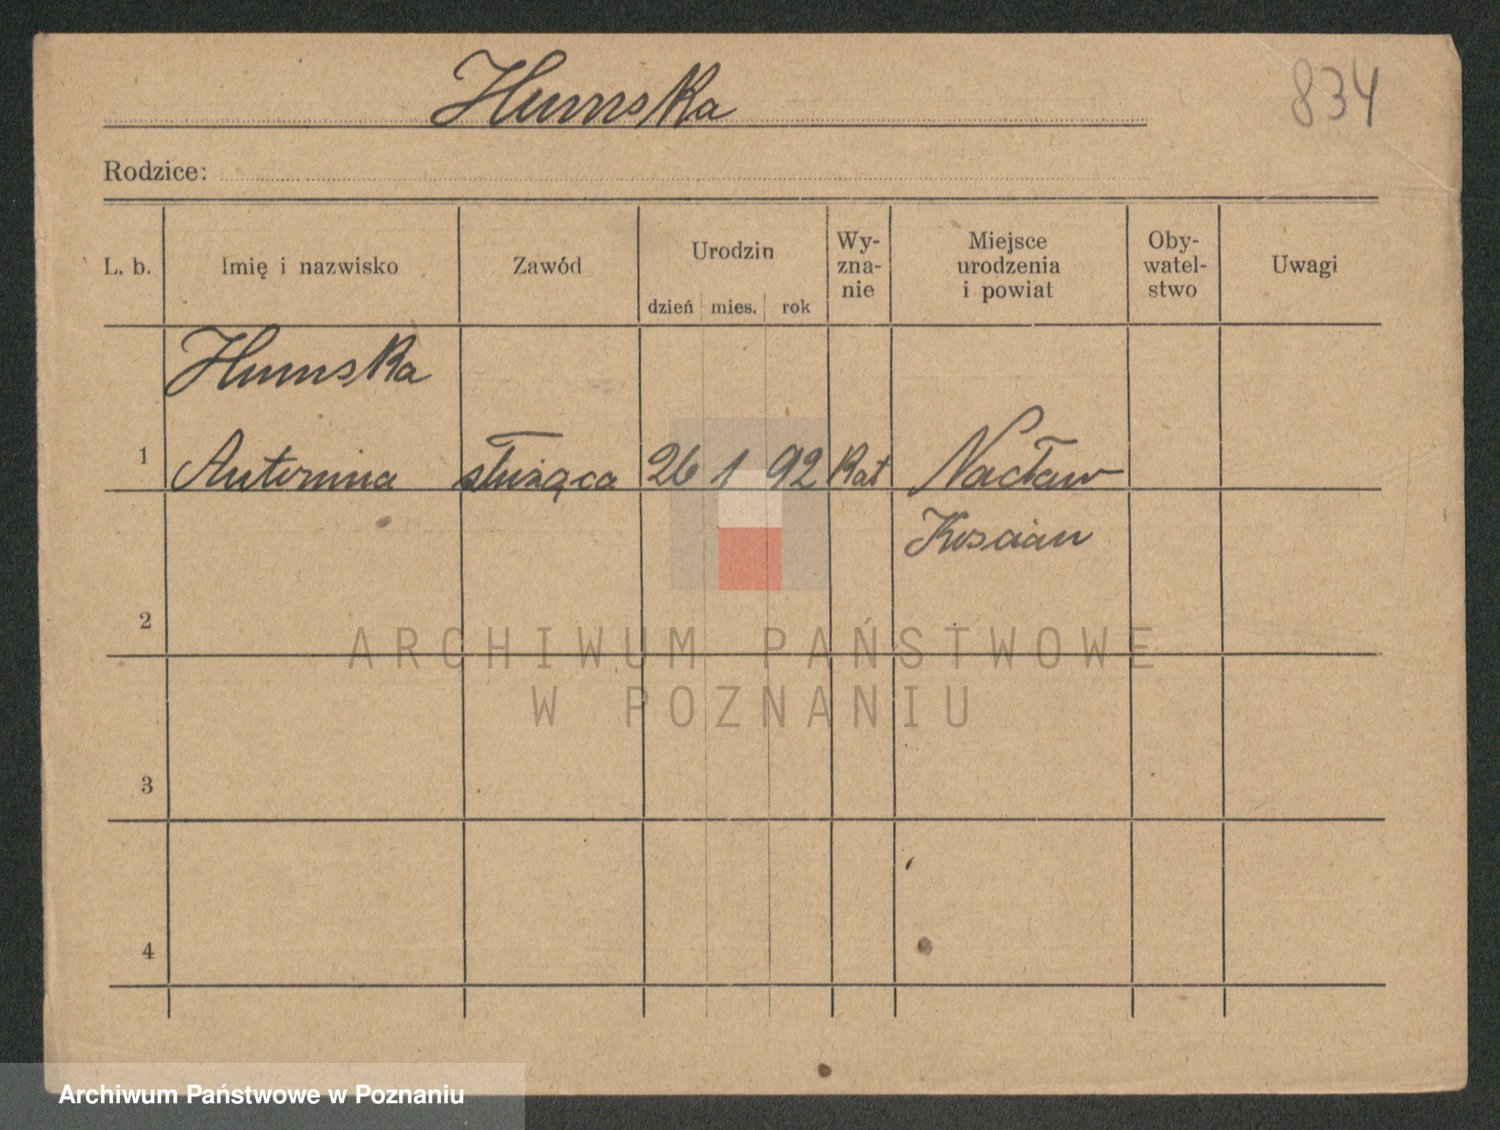 Humska
834
Rodzice:
L. b. Imię i nazwisko Zawód Urodzin dzień mies. rok Wy-zna-nie Miejsce urodzenia i powiat Oby-watel-stwo Uwagi
Humska
1 Antonina służąca 26 1 92 Kat Nacław
Kościan
2
3
4
ARCHIWUM PAŃSTWOWE
W POZNANIU
Archiwum Państwowe w Poznaniu